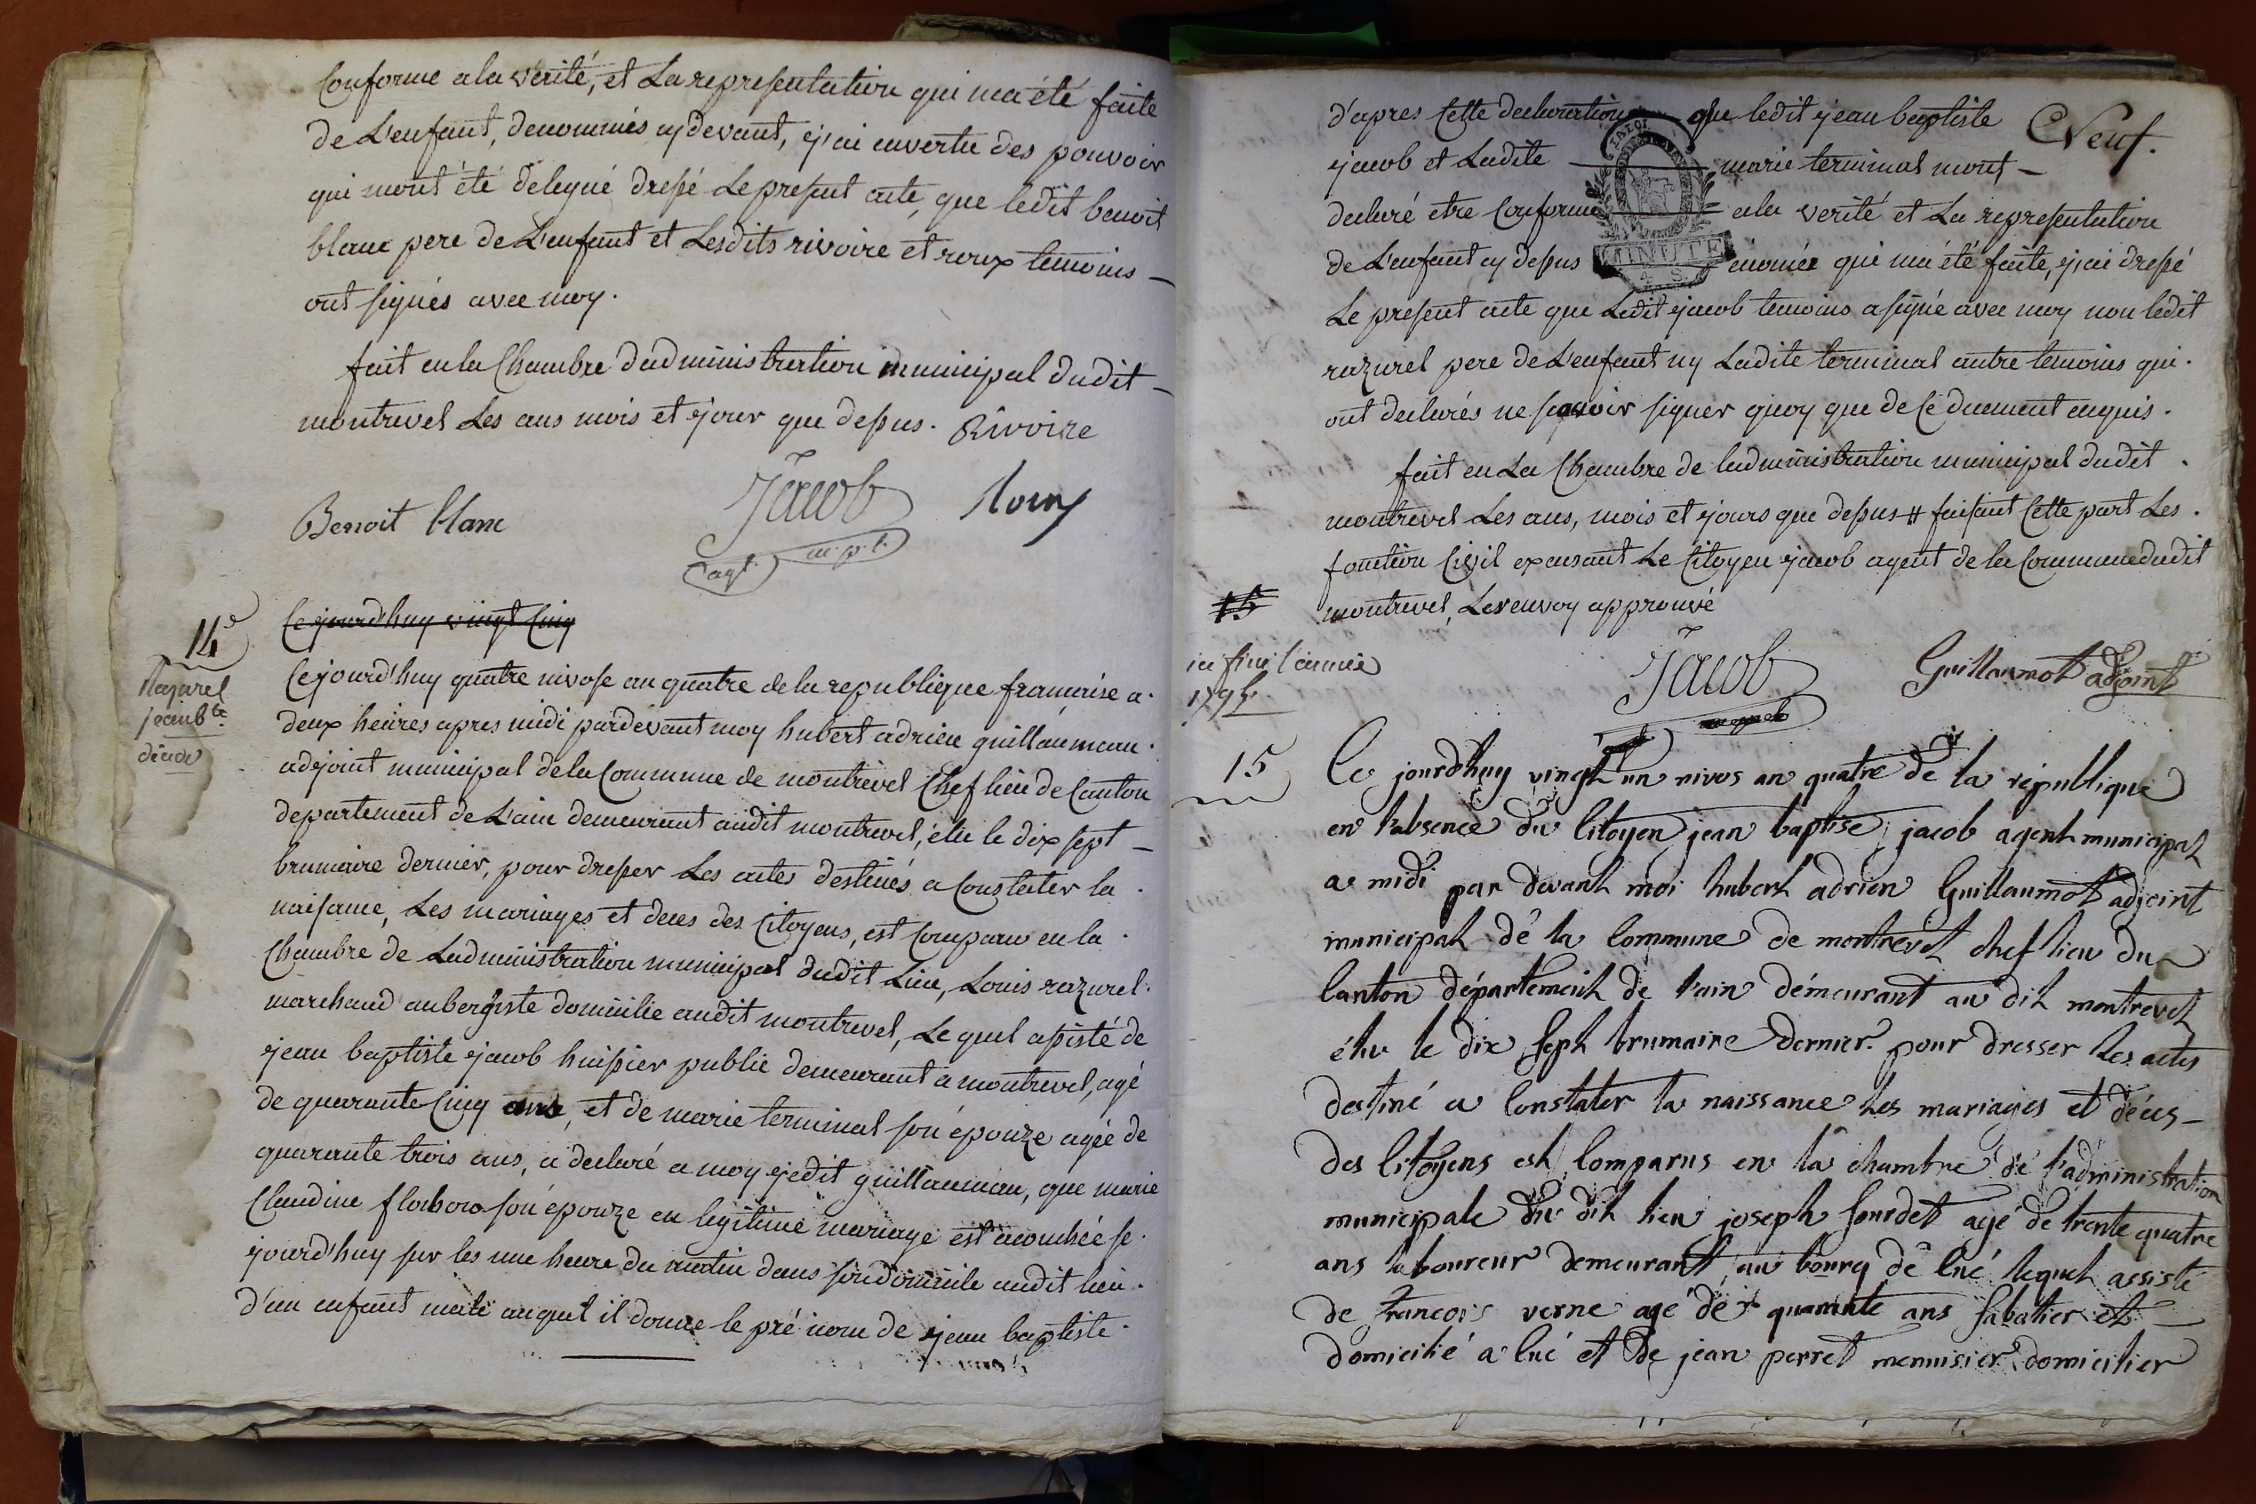 Conforme ala verité, et La representation qui ma été faite
de L'enfant, denommés cy devant, j'ai envertu des pouvoir
qui mont été delegué dressé Le present acte, que ledit benoit
blanc pere de L'enfant et Lesdits rivoire et roux temoins –
ont signés avec moy.
fait en la Chambre dadministration municipal dudit –
montrevel Les ans mois et jour que dessus. Rivoire
Benoit blanc
Jacob
agt. m. p. l.
14e
Razurel
jean bte
décadé
Cejourd'huy vingt Cinq
Cejourd'huy quatre nivose an quatre dela republique française a.
deux heures apres midi pardevant moy hubert adrien guillaumau.
adjoint municipal dela Commune de montrevel Chef lieu de Canton
departement de L'ain demeurant audit montrevel, élu le dix sept –
brumaire dernier, pour dresser Les actes destinés a Constater la.
naissance, Les mariages et deces des Citoyens, est Comparu en la.
Chambre de Ladministration municipal dudit Lieu, Louis razurel.
marchand aubergiste domicilie audit montrevel, Le quel assisté de
jean baptiste jacob huissier public demeurant a montrevel, agé
de quarante Cinq ans, et de marie terminal son épouze agée de
quarante trois ans, a declaré a moy jedit guillaumau, que marie
Claudine son épouze en legitime mariage est acouchée se.
jourd'huy sur les une heure du matin dans son domicile audit lieu.
d'un enfant male auquel il donne le pré nom de jean baptiste.
Neuf.
d'apres Cette declaration que ledit jean baptiste
jacob et Ladite marie terminal mont –
declaré etre Conforme ala verité et La representation
de L'enfant cy dessus énomée qui ma été faite, j'ai dressé
Le present acte que Ledit jacob temoins a signé avec moy non ledit
razurel pere de L'enfant ny Ladite terminal autre temoins qui.
ont declarés ne scavoir signer quoy que de Ce duement enquis.
fait en La Chambre de ladministration municipal dudit.
montrevel Les ans, mois et jours que dessus # faisant Cette part Les.
fonction Civil excusant Le Citoyen jacob agent de la Commune dudit
montrevel, Le renvoy approuvé
15
ici fini l'année
1795
Jacob
Guillaumot adjoint
15
Ce jourdhuy vingt un nivos an quatre de la république
en l'absence du Citoyen jean baptise jacob agent municipal
a midi par devant moi hubert adrien Guillaumot adjoint
municipal de la Commune de montrevel chef lieu du
Canton département de l'ain démeurant au dit montrevel
élu le dix sept brumaire dernier. pour dresser les actes
destiné a Constater la naissance les mariages et déces –
des Citoyens est Comparus en la chambre de l'administration
municipale du dit lieu joseph sourdet agé de trente quatre
ans laboureur demeurant au bourg de Cué lequel assisté
de francois verne agé de quarante ans sabatier et
domicilié a Cué et de jean perret mennisier domicilier